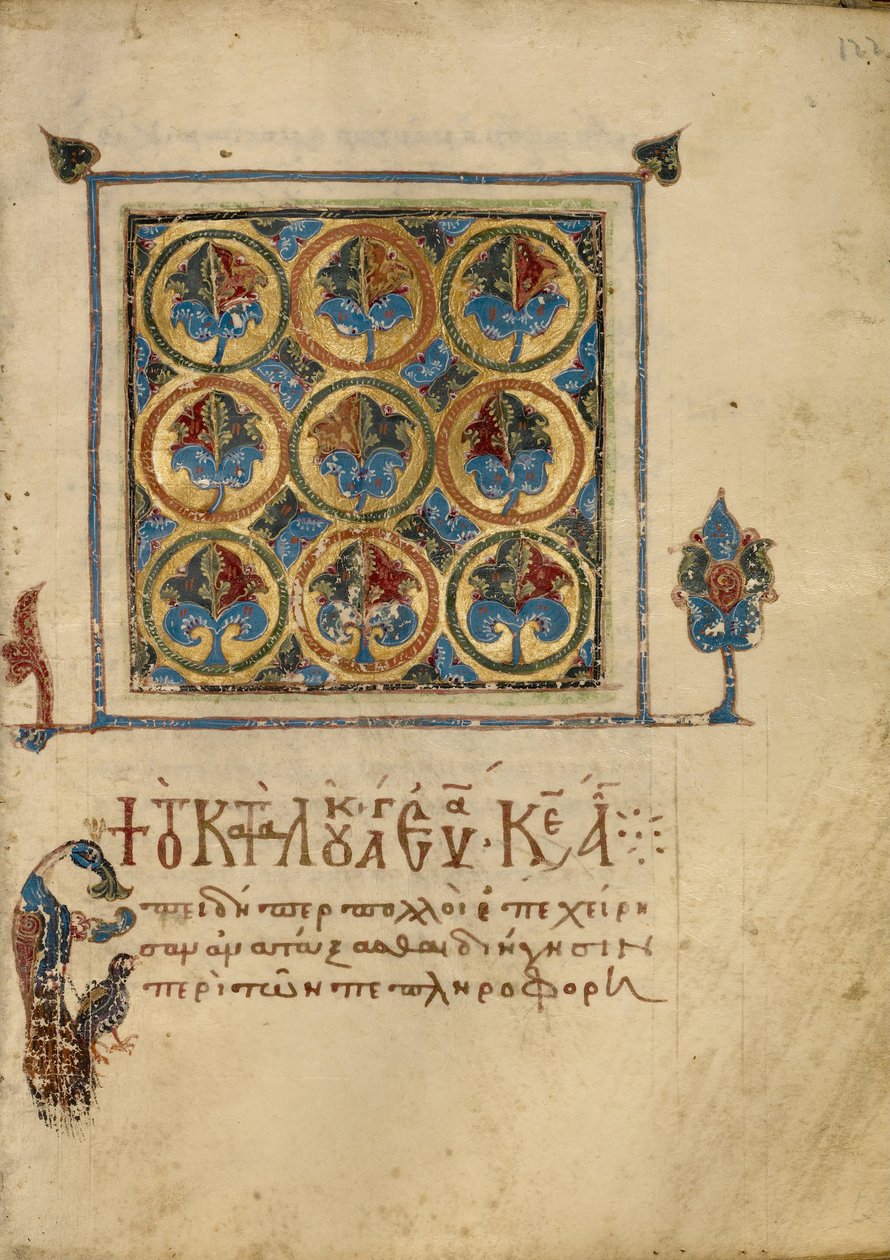 122
† Τὸ Κατὰ Λουκ ἅγ Εὐα · Κε Α
Ἐπειδήπερ πολλοὶ ἐπεχείρη
σαν ἀνατάξασθαι διήγησιν
περὶ τῶν πεπληροφορη